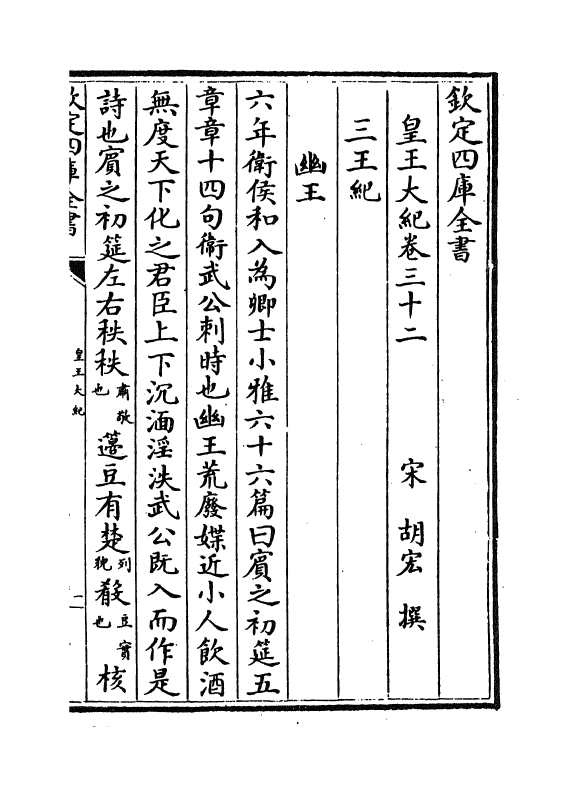 欽定四庫全書
皇王大紀卷三十二　宋　胡宏　撰
三王紀
幽王
六年衛侯和入為卿士小雅六十六篇曰賓之初筵五
章章十四句衛武公刺時也幽王荒廢媟近小人飲酒
無度天下化之君臣上下沉湎淫泆武公既入而作是
詩也賓之初筵左右秩秩肅敬也籩豆有楚列貌殽豆實也核
欽定四庫全書
皇王大紀